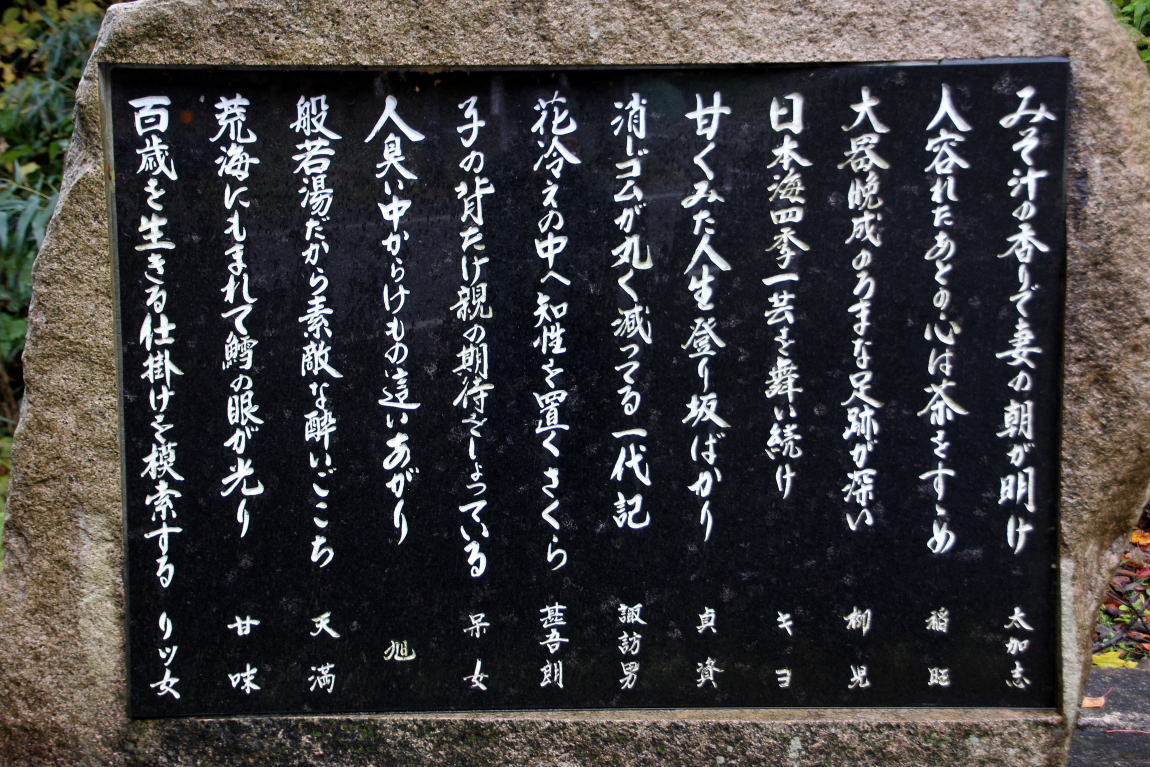 みそ汁の香りで妻の朝が明け 太加志
人容れたあとの心は茶をすゝめ 稲旺
大器晩成のろまな足跡が深い 柳児
日本海四季一芸を舞い続け キヨ
甘くみた人生登り坂ばかり 貞資
消しゴムが丸く減ってる一代記 諏訪男
花冷えの中へ知性を置くさくら 甚吾朗
子の背たけ親の期待をしょっている 呆女
人臭い中からけもの這いあがり 旭
般若湯だから素敵な酔いごこち 天満
荒海にもまれて鱈の眼が光り 甘味
百歳を生きる仕掛けを模索する リツ女